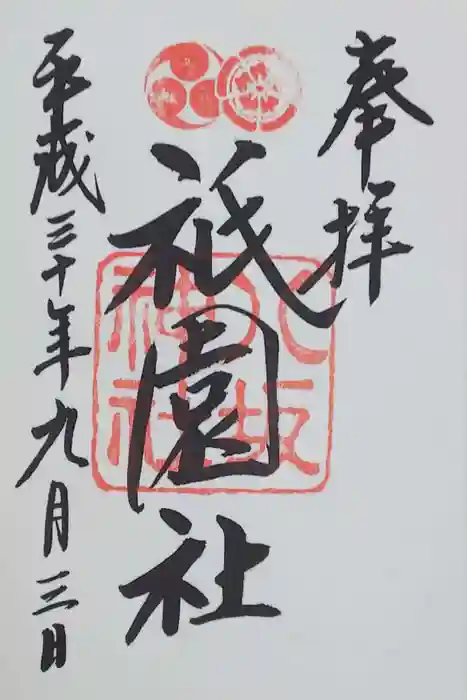 奉拝
祇園社
八坂神社
平成三十年九月三日